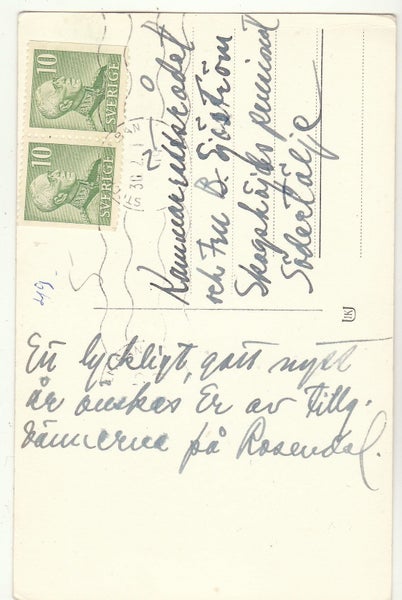 10
SVERIGE
10
SVERIGE
Kammarrådet
och Fru B. Sjöström
Skogshöjds
Södertälje
49
Ett lyckligt, gott nytt
år önskas Er av Tillg.
vännerna på Rosendal.